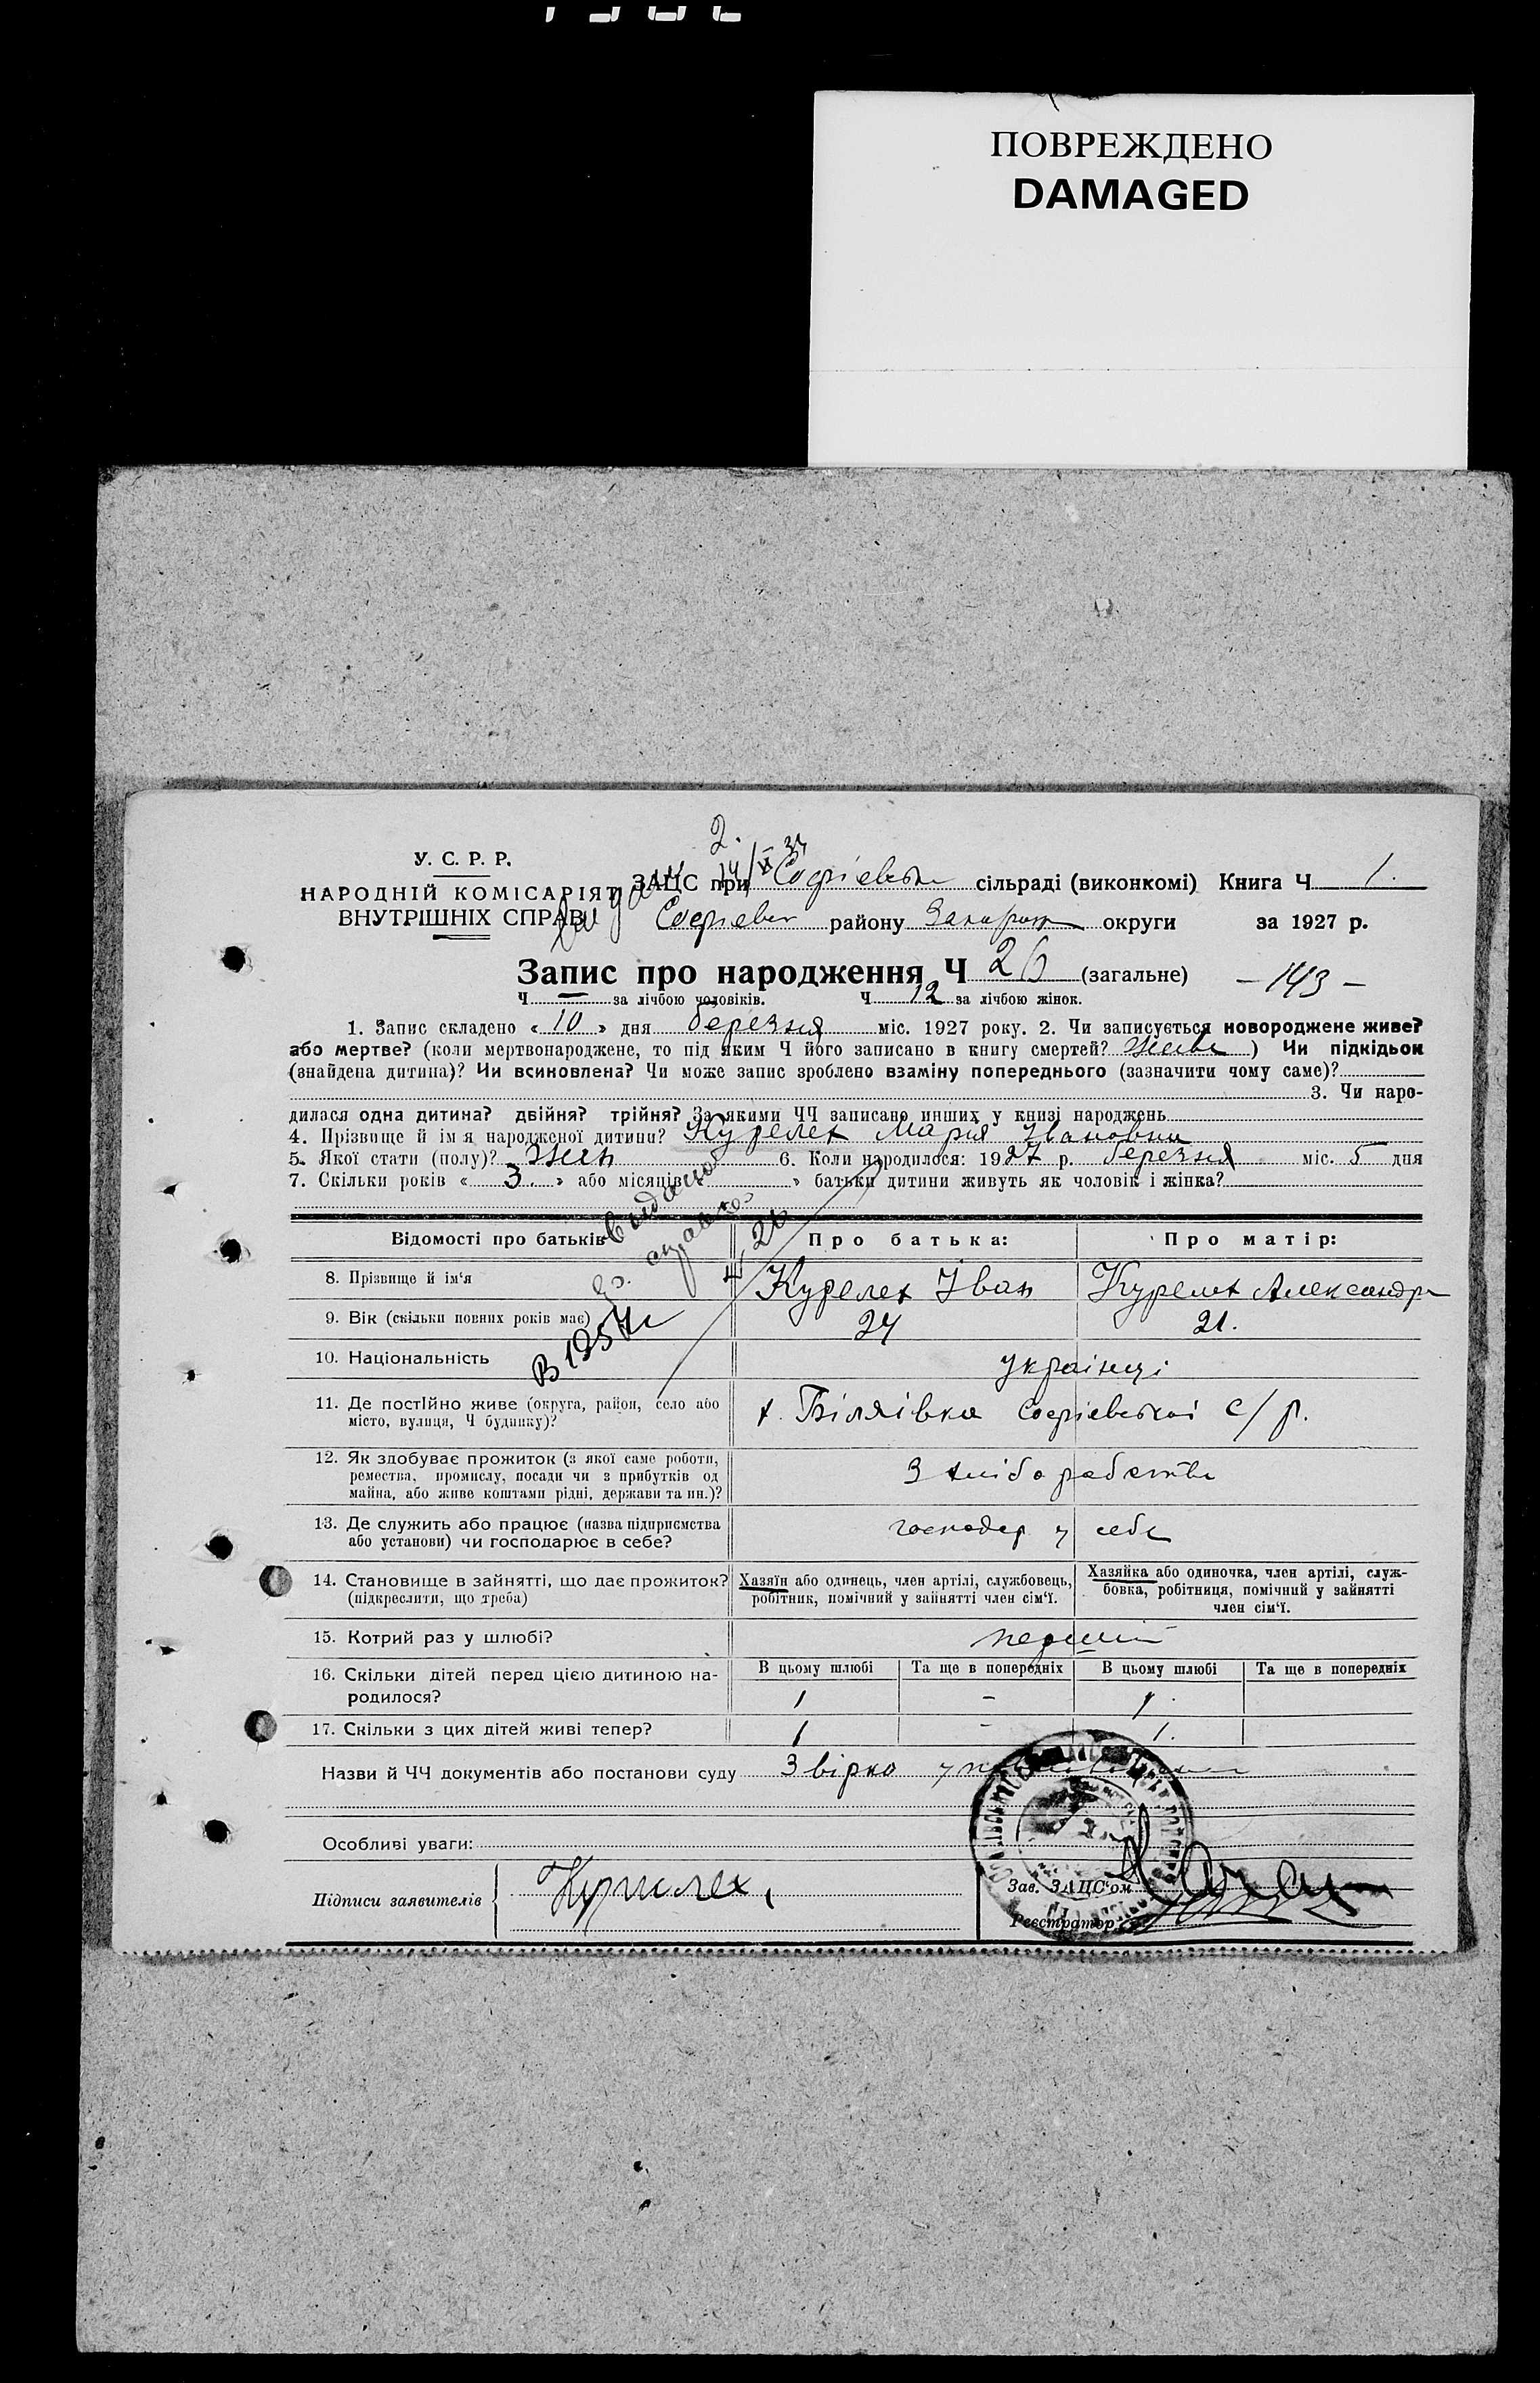 ПОВРЕЖДЕНО
DAMAGED
2.
У. С. Р. Р.
НАРОДНІЙ КОМІСАРІЯТ
ВНУТРІШНІХ СПРАВ
ЗАЦС при Софіевськ сільраді (виконкомі) Книга Ч 1.
Софіевск району Запоріж округи за 1927 р.
Запис про народження Ч 26 (загальне) - 143 -
Ч — за лічбою чоловіків. Ч 12 за лічбою жінок.
1. Запис складено « 10 » дня березня міс. 1927 року. 2. Чи записується новороджене живе?
або мертве? (коли мертвонароджене, то під яким Ч його записано в книгу смертей? живе ) Чи підкідьок
(знайдена дитина)? Чи всиновлена? Чи може запис зроблено взаміну попереднього (зазначити чому саме)?
3. Чи наро-
дилася одна дитина? двійня? трійня? За якими ЧЧ записано инших у книзі народжень
4. Прізвище й ім'я народженої дитини? Курелех Марія Івановна
5. Якої стати (полу)? жін 6. Коли народилося: 1927 р. березня міс. 5 дня
7. Скільки років « 3. » або місяців « » батьки дитини живуть як чоловік і жінка?
Видано
В 1957
Відомості про батьків Про батька: Про матір:
8. Прізвище й ім'я Курелех Іван Курелех Александра
9. Вік (скільки повних років має) 24 21.
10. Національність українці
11. Де постійно живе (округа, район, село або
місто, вулиця, Ч будинку)? х. Біляівка Софіевськоі с/р.
12. Як здобуває прожиток (з якої саме роботи,
ремества, промислу, посади чи з прибутків од
майна, або живе коштами рідні, держави та ин.)?
З хлібо робства
13. Де служить або працює (назва підприємства
або установи) чи господарює в себе?
господар у себе
14. Становище в зайнятті, що дає прожиток?
(підкреслити, що треба)
Хазяїн або одинець, член артілі, службовець,
робітник, помічний у зайнятті член сім'ї.
Хазяйка або одиночка, член артілі, служ-
бовка, робітниця, помічний у зайнятті
член сім'ї.
15. Котрий раз у шлюбі? перший
16. Скільки дітей перед цією дитиною на-
родилося?
В цьому шлюбі Та ще в попередніх В цьому шлюбі Та ще в попередніх
1 - 1.
17. Скільки з цих дітей живі тепер? 1 - 1.
Назви й ЧЧ документів або постанови суду Звірко
Особливі уваги:
Підписи заявителів Курилех,
Зав. ЗАЦС'ом
Реєстратор